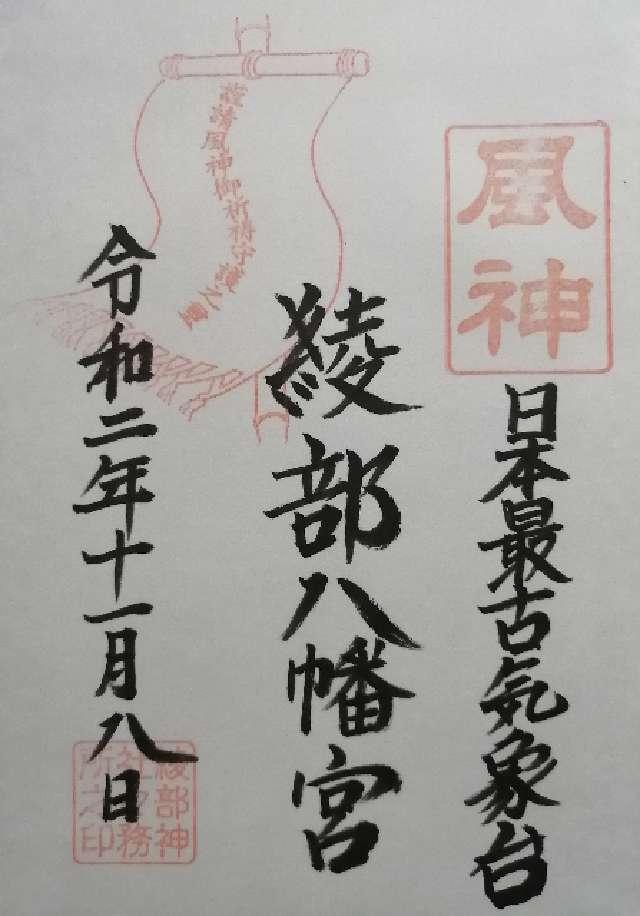 風神
日本最古気象台
綾部八幡宮
令和二年十一月八日
綾部神
社々務
所之印